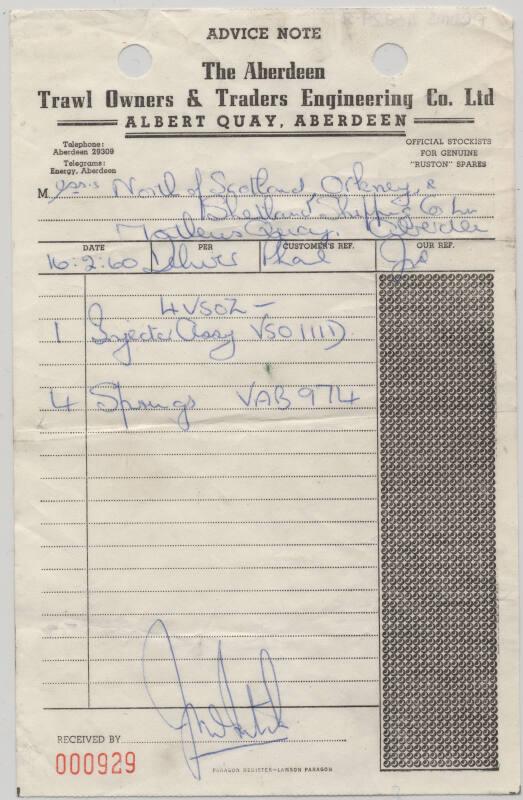 ADVICE NOTE
The Aberdeen
Trawl Owners & Traders Engineering Co. Ltd
ALBERT QUAY, ABERDEEN
Telephone:
Aberdeen 29309
Telegrams:
Energy, Aberdeen
OFFICIAL STOCKISTS
FOR GENUINE
"RUSTON" SPARES
Mess.s North of Scotland, Orkney, &
Shetland Shipping Co. Ltd
Quay, Aberdeen
DATE PER CUSTOMER'S REF. OUR REF.
16.2.60 Deliver
4VSOZ —
1 Injector Assy VSO 111D
4 Springs VAB 974
RECEIVED BY
000929
PARAGON REGISTER—LAMSON PARAGON